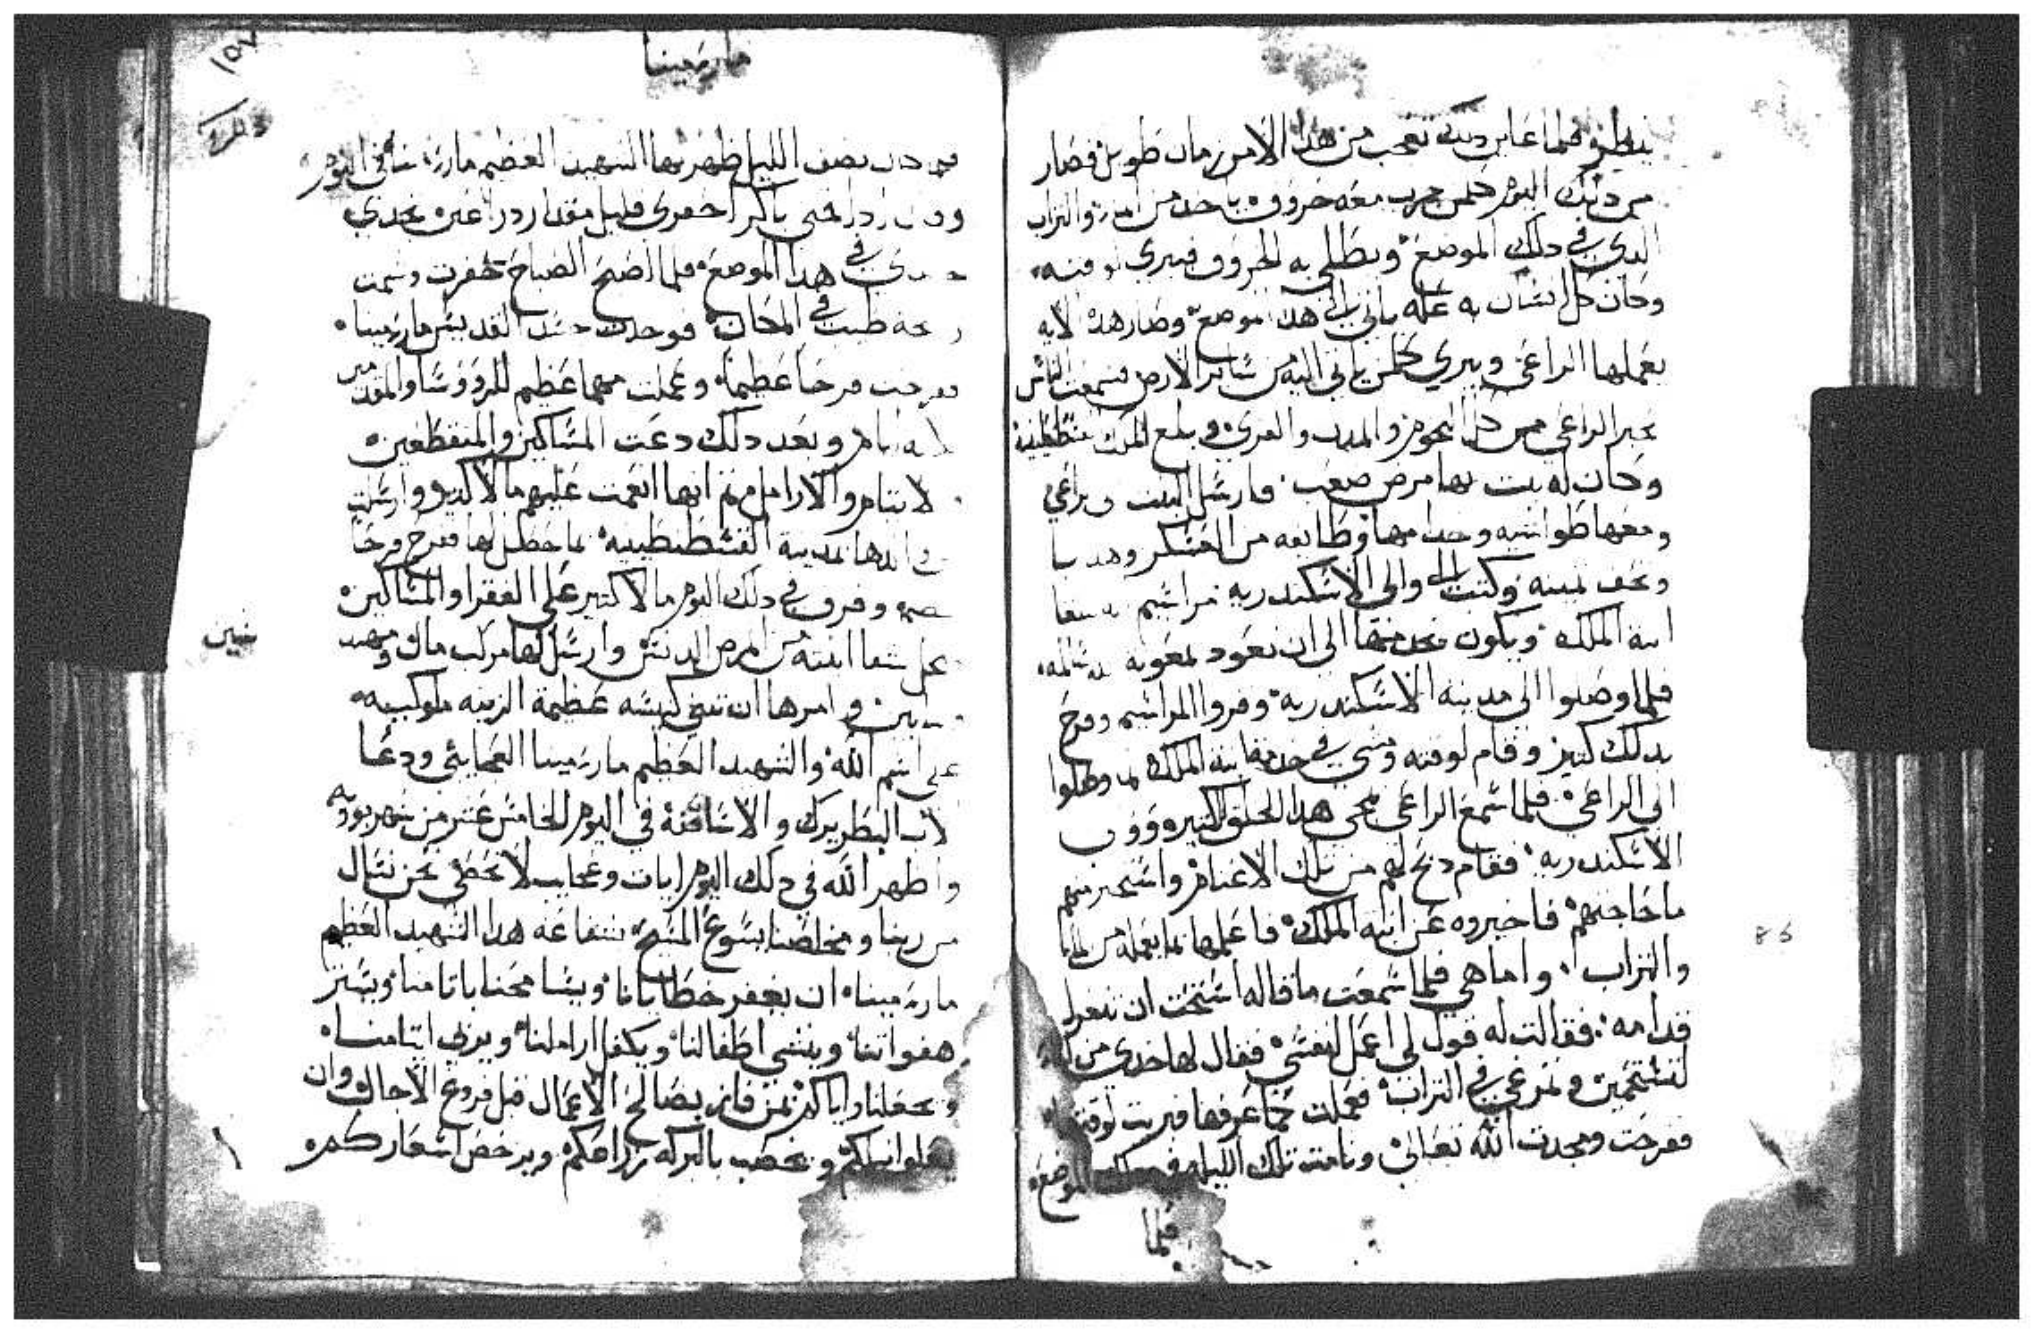 فلما عاين ذلك تعجب من هذا الامر زمان طويل فصار
من ذلك اليوم كلمن جرب معه خروف ياخد من الما والتراب
الدي في دلك الموضع ويطلي به الخروف فيبرى لوقته
وكان كل انسان به عله ياتي الى هدا الموضع وصار هده الايه
يعملها الراعي ويبري كلمن ياتي اليه من ساير الارض فسمعت الناس
بخبر الراعي من كل التخوم والمدن والقرى وبلغ الملك قسطنطينيه
وكان له بنت بها مرض صعب فارسل البنت الراعي
ومعها طواشيه وخدامها وطايفه من العسكر وهدايا
وتحف ثمينه وكتب الى والي الاسكندريه مراسيم
ابنة الملك ويكون في خدمتها الى ان تعود بمعونة الله سالمه
فلما وصلوا الى مدينة الاسكندريه وقروا المراسيم وفرح
بدلك كتير وقام لوقته ومشي في خدمة ابنة الملك لما وصلوا
الى الراعي فلما سمع الراعي بمجي هدا الخلق الكتيره
الاسكندريه فقام دبح لهم من تلك الاغنام واستخبر منهم
ما حاجتهم فاخبروه عن ابنة الملك فاعلمها بما يعمله من الما
والتراب واما هي فلما سمعت ما قاله استحت ان تتعرا
قدامه فقالت له قول لي اعمل لنفسي فقال لها خدي من
لتستحمين وتمرغي في التراب فعملت كما عرفها فبريت لوقتها
ففرحت ومجدت الله تعالى ونامت تلك الليله في دلك الموضع
فلما
١٥٧
مارمينا
فلما كان نصف الليل ظهر لها الشهيد العظيم مارمينا في النوم
وقال باكر احفري قليل مقدار دراعين تجدي
جسدي في هدا الموضع فلما اصبح الصباح حفرت وشمت
رايحه طيبه في المكان فوجدت جسد القديس مارمينا
ففرحت فرحا عظيما وعملت مهما عظيم للرووسا والمقدمين
ايام وبعد دلك دعت المساكين والمنقطعين
والايتام والارامل ثم انها انعمت عليهم مالا كتير وارسلت
الى والدها بمدينة القسطنطينيه بما حصل لها ففرح فرحا
عظيم وفرق في دلك اليوم مالا كتير على الفقرا والمساكين
على شفا ابنته من المرض الدنس وارسل لها مركب مال ومهندسين
وامرها ان تبني كنيسه عظيمة الزينه ملوكيه
على اسم الله والشهيد العظيم مارمينا العجايبي ودعا
الاب البطريرك والاساقفة في اليوم الخامس عشر من شهر بوونه
واظهر الله في دلك اليوم ايات وعجايب لا تحصى نحن نسال
من ربنا ومخلصنا يسوع المسيح بشفاعة هدا الشهيد العظيم
مارمينا ان يغفر خطايانا ويسامحنا باتامنا ويستر
هفواتنا وينشي اطفالنا ويكفل اراملنا ويربي ايتامنا
ويجعلنا واياكم ممن فاز بصالح الاعمال قبل فروغ الاجال وان
يعلوا نيلكم ويخصب بالبركه زراعكم ويرخص اسعاركم
86